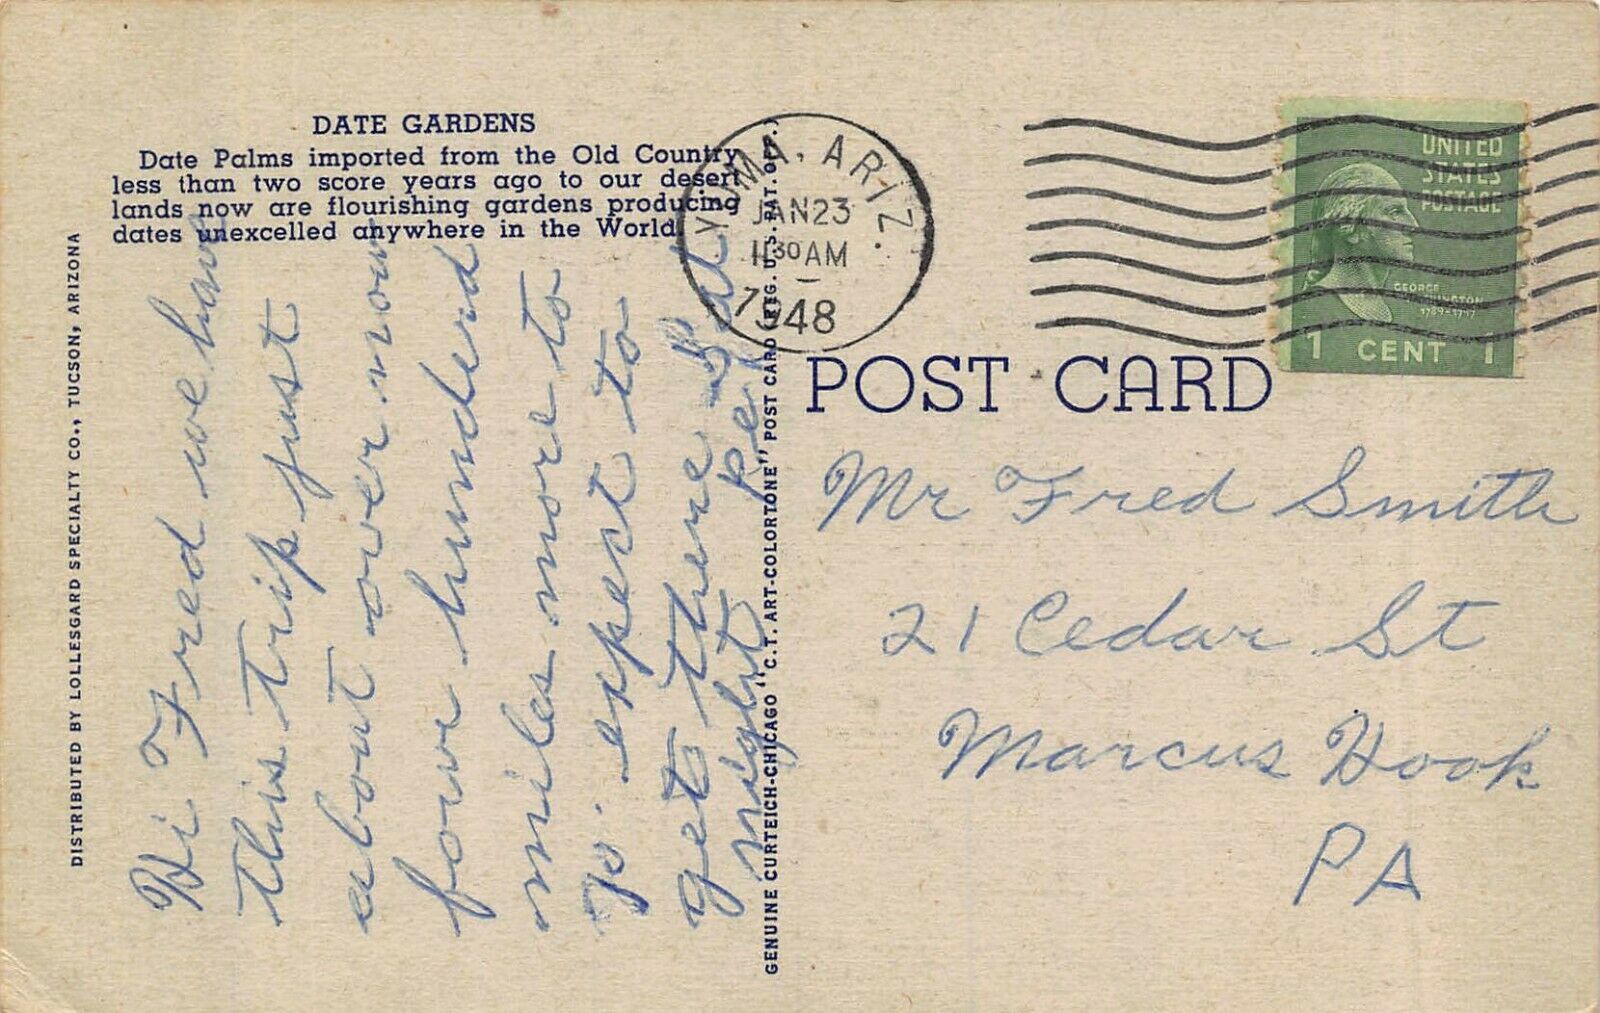 DATE GARDENS
Date Palms imported from the Old Country
less than two score years ago to our desert
lands now are flourishing gardens producing
dates unexcelled anywhere in the World.
DISTRIBUTED BY LOLLESGARD SPECIALTY CO., TUCSON, ARIZONA
Hi Fred we have
this trip just
about over now
four hundred
miles more to
go. expect to
get there Sat
night
GENUINE CURTEICH-CHICAGO "C.T. ART-COLORTONE" POST CARD (REG. U.S. PAT. OFF.)
YUMA, ARIZ.
JAN 23
11 30 AM
1948
UNITED
STATES
POSTAGE
GEORGE
WASHINGTON
1789-1797
1 CENT 1
POST CARD
Mr Fred Smith
21 Cedar St
Marcus Hook
PA